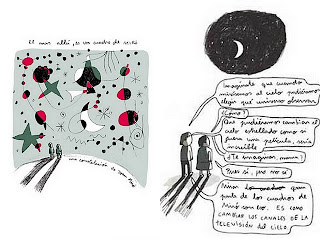 El mar allí, es un cuadro de Miró
una constelación de Joan Miró
Imagínate que cuando
mirásemos al cielo pudiéramos
elegir qué universo observar
¿Cómo?
Que pudiéramos cambiar el
cielo estrellado como si
fuera una película, sería
increíble
¿Te imaginas, mamá?
Pues sí, pero no sé
Miran los cuadros que
parte de los cuadros de
Miró son eso. ES COMO
CAMBIAR LOS CANALES DE LA
TELEVISIÓN DEL CIELO.